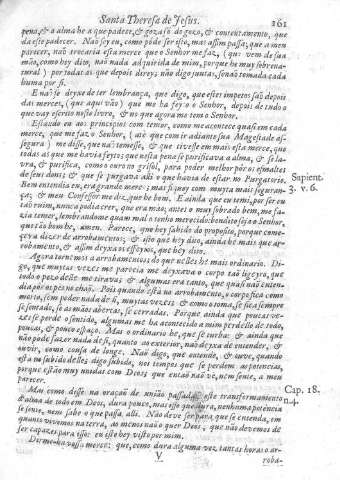 Santa Theresa de Jesus. 161
pena, & a alma he a que padece, & goza só do gozo, & contentamento, que
da este padecer. Não sey eu, como póde ser isto, mas assim passa; que a meu
parecer, naõ trocaria esta merce que o Senhor me faz, (que vem de sua
mão, como hey dito, não nada adquirida de mim, porque he muy sobrena-
tural) por todas as que depois direy; não digo juntas, senaõ tomada cada
huma por si.
E naõ se deyxe de ter lembrança, que digo, que estes impetos saõ depois
das merces, (que aqui vaõ) que me ha feyto o Senhor, depois de tudo o
que vay escrito neste livro, & no que agora me tem o Senhor.
Estando eu aos principios com temor, como me acontece quasi em cada
merce, que me faz o Senhor, (até que com ir adiante sua Magestade as-
segura) me disse, que naõ temesse, & que tivesse em mais esta merce, que
todas as que me havia feyto; que nesta pena se purificava a alma, & se la-
vra, & purifica, como o ouro no crisol, para poder melhor pór os esmaltes
de seus dons; & que se purgava alli o que havia de estar no Purgatorio.
Sapient.
3. v. 6.
Bem entendia eu, era grande merce; mas fiquey com muyta mais seguran-
ça; & meu Confessor me diz, que he bom. E ainda que eu temi, por ser eu
taõ ruim, nunca podia crer, que era máo; antes o muy sobrado bem, me fa-
zia temer, lembrandome quam mal o tenho merecido: bendito seja o Senhor,
que taõ bom he, amen. Parece, que hey sahido do proposito, porque come-
çey a dizer de arrobamentos; & isto que hey dito, ainda he mais que ar-
robamento, & assim deyxa os effeytos, que hey dito.
Agora tornemos a arrobamentos do que nelles he mais ordinario. Di-
go, que muytas vezes me parecia me deyxava o corpo taõ ligeyro, que
todo o pezo delle me tirava; & algumas era tanto, que quasi naõ enten-
dia pór os pés no chaõ. Pois quando está no arrobamento, o corpo fica como
morto, sem poder nada de si, muytas vezes; & como o toma, se fica sempre
se sentado, se as mãos abertas, se cerradas. Porque ainda que poucas ve-
zes se perde o sentido, algumas me ha acontecido a mim perdello de todo,
poucas, & pouco espaço. Mas o ordinario he, que se turba: & ainda que
não póde fazer nada de si, quanto ao exterior, naõ deyxa de entender, &
ouvir, como cousa de longe. Naõ digo, que entende, & ouve, quando
está no subido delles; digo subido, nos tempos que se perdem as potencias,
porque estão muy unidas com Deos; que entaõ naõ vé, nem sente, a meu
parecer.
Cap. 18.
n. 4.
Mas como disse na oração de união passada, este transformamento
da alma de todo em Deos, dura pouco, mas isso que dura, nenhuma potencia
se sente, nem sabe o que passa alli. Não deve ser para que se entenda, em
quanto vivemos na terra, ao menos naõ o quer Deos, que não devemos de
ser capazes para isso: eu isto hey visto por mim.
Dirme-ha vossa merce: que, como dura alguma vez, tantas horas o ar-
V roba-